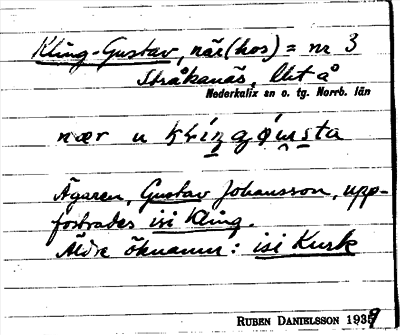 Kling-Gustav, när (hos) = nr 3
Stråkanäs,
Nederkalix sn o. tg. Norrb. län
nær u
Ägaren, Gustav Johansson, upp-
fostrades isi Kling.
Äldre öknamn: isi Kurk
RUBEN DANIELSSON 1939